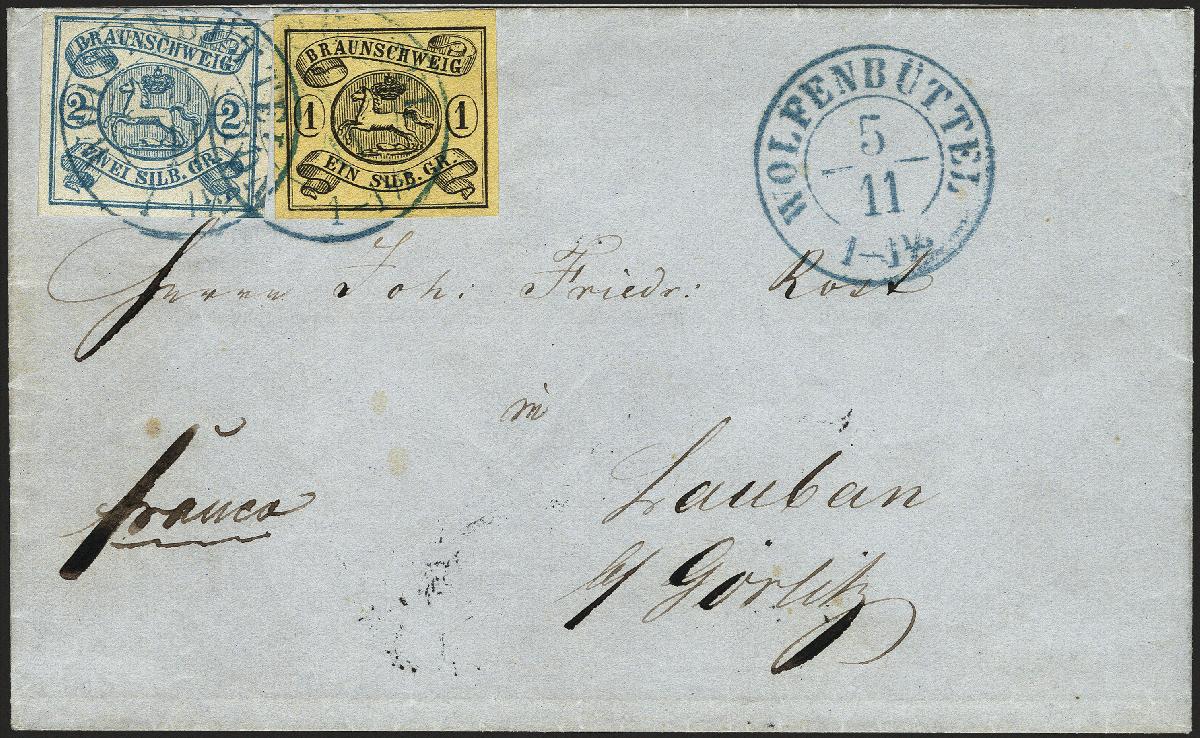 BRAUNSCHWEIG
2 2
ZWEI SILB. GR.
BRAUNSCHWEIG
1 1
EIN SILB. GR.
1-1
WOLFENBÜTTEL
5
11
1-1½
Herrn Joh: Friedr: Rost
in
franco
Lauban
b/ Görlitz